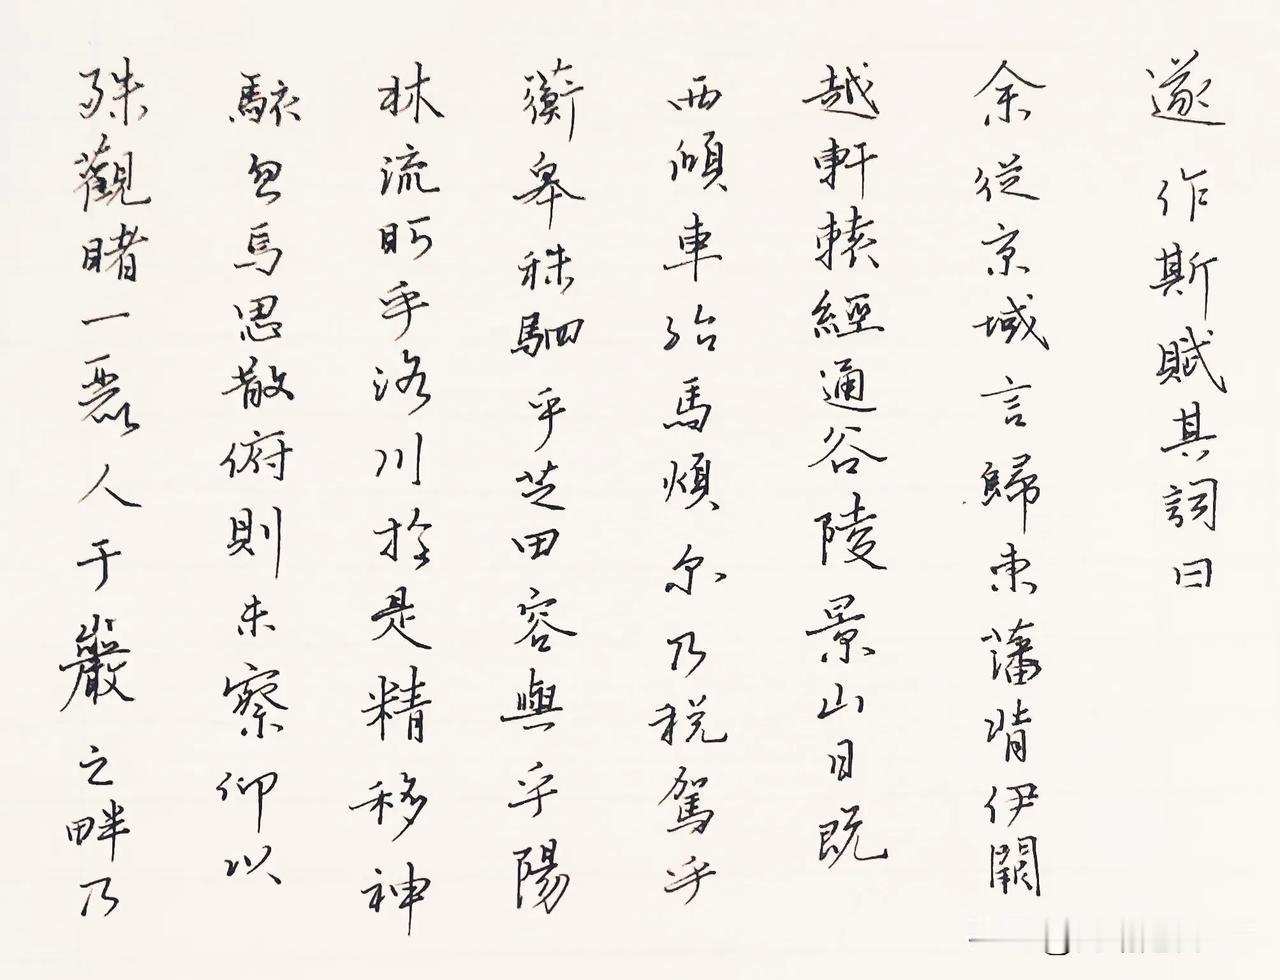 遂作斯賦其詞曰
余從京域言歸東藩背伊闕
越轘轅經通谷陵景山日既
西傾車殆馬煩尔乃税駕乎
蘅皋秣駟乎芝田容與乎陽
林流眄乎洛川於是精移神
駭忽焉思散俯則未察仰以
殊觀睹一麗人于巖之畔乃